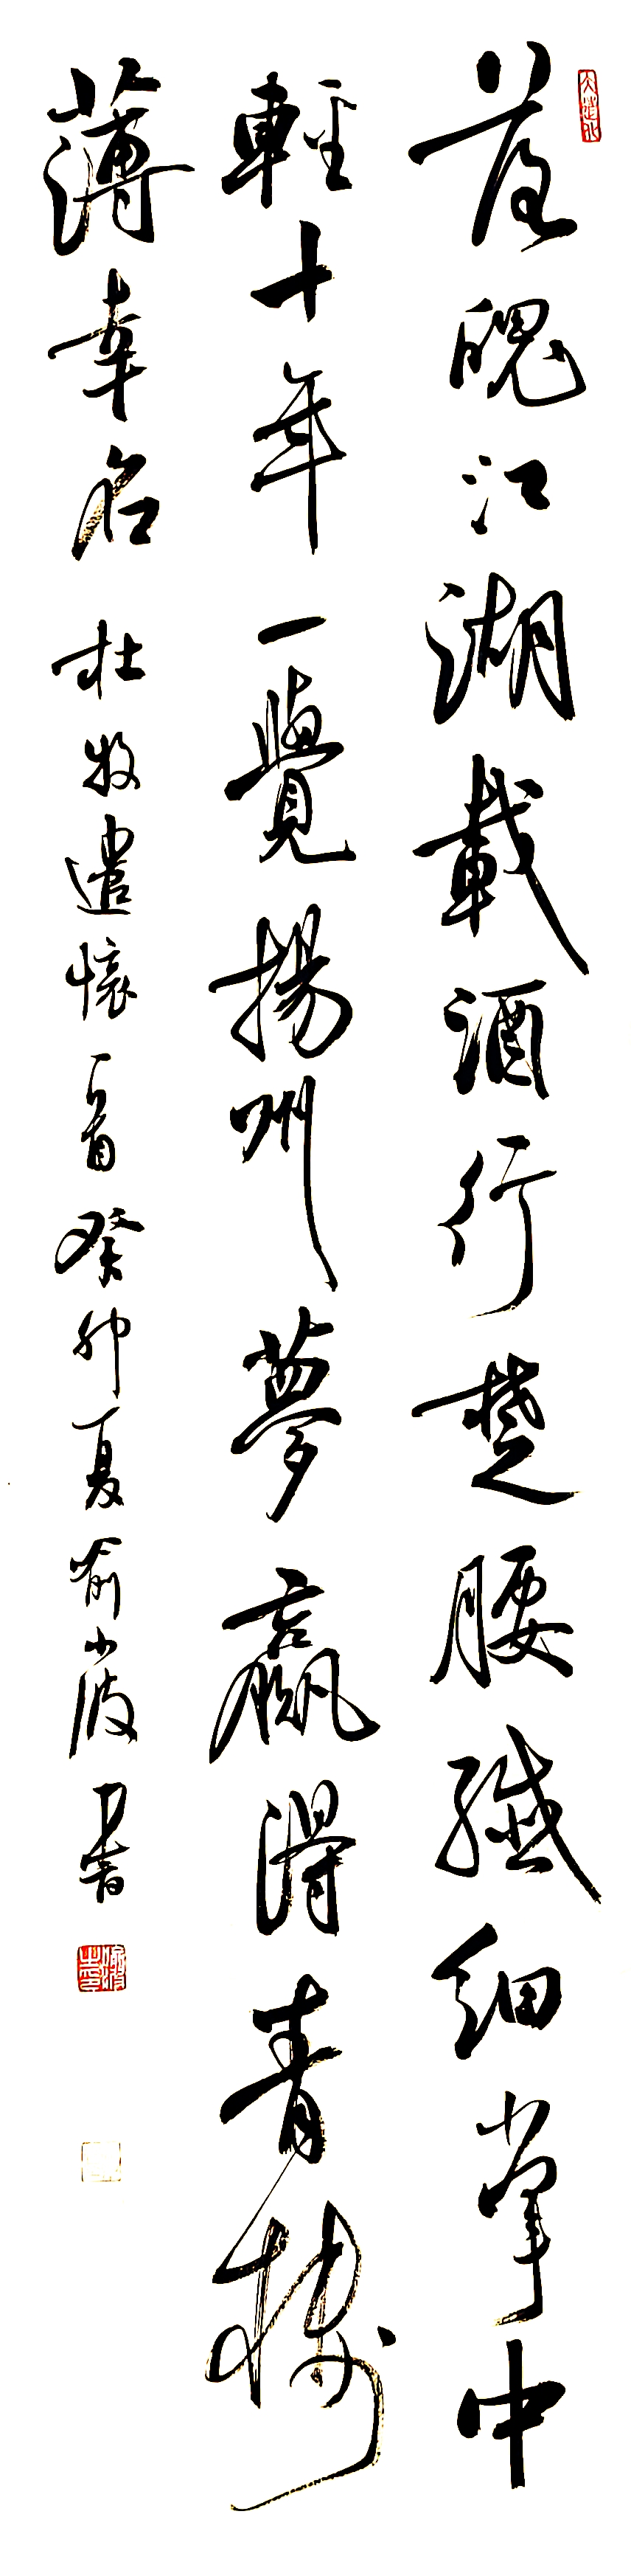 落魄江湖載酒行楚腰纖細掌中
輕十年一覺揚州夢贏得青樓
薄幸名 杜牧遣懷一首癸卯夏 書